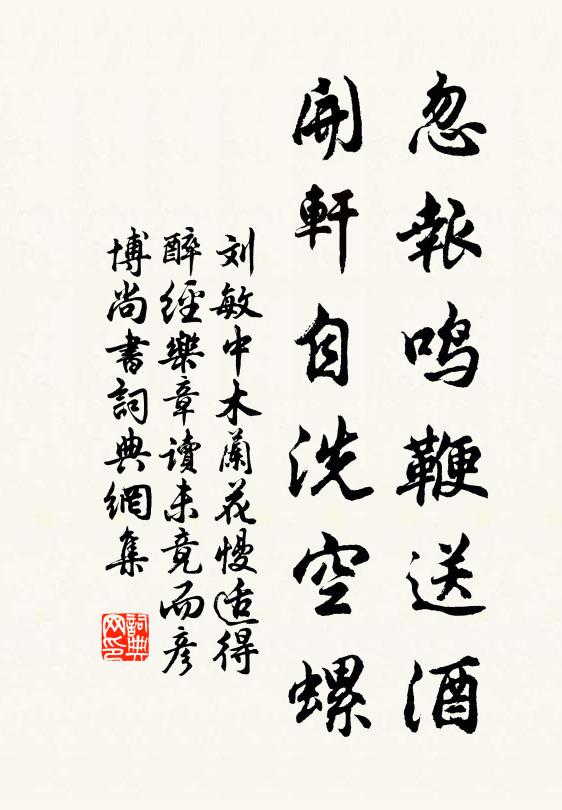 忽報鳴鞭送酒
開軒自洗空螺
刘敏中木蘭花慢适得
醉經樂章讀未竟而彦
博尚書詞典網集
詞典网印